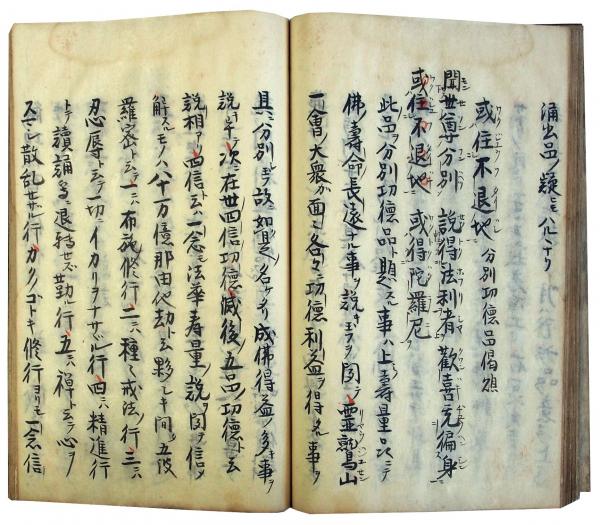 涌出品ノ疑ヒモハルヽナリ
或住不退地 分別功徳品偈頌
聞世尊分別 説得法利者 歓喜充徧身
或住不退地 或得陀羅尼
此品ヲ分別功徳品ト題スル事ハ上ノ壽量品ニシテ
佛ノ壽命長遠ナル事ヲ説玉フヲ聞テ霊鷲山
一會ノ大衆カ面々各々ニ功徳利益ヲ得ル事ヲ
具ニ分別シ玉フ故ニ如是名ケタリ成佛得益ノ多キ事ヲ
説キ玉フ次ニ在世四信ノ功徳滅後ノ五品ノ功徳ト云
説相アリ四信ト云ハ一念モ法華壽量ノ説ヲ聞テ信ヲ
解スルモノハ八十万億那由他劫ト云夥シキ間五波
羅密ト云テ一ニハ布施ノ修行二ニハ種々ノ戒法ノ行三ニハ
忍辱ト云テ一切ニイカリヲナサヾル行四ニハ精進ノ行
トテ讀誦等ニ退轉セズ勤ル行五ニハ禅ト云テ心ヲ
スマシ散乱セザル行カクノゴトキ修行ヨリモ一念信